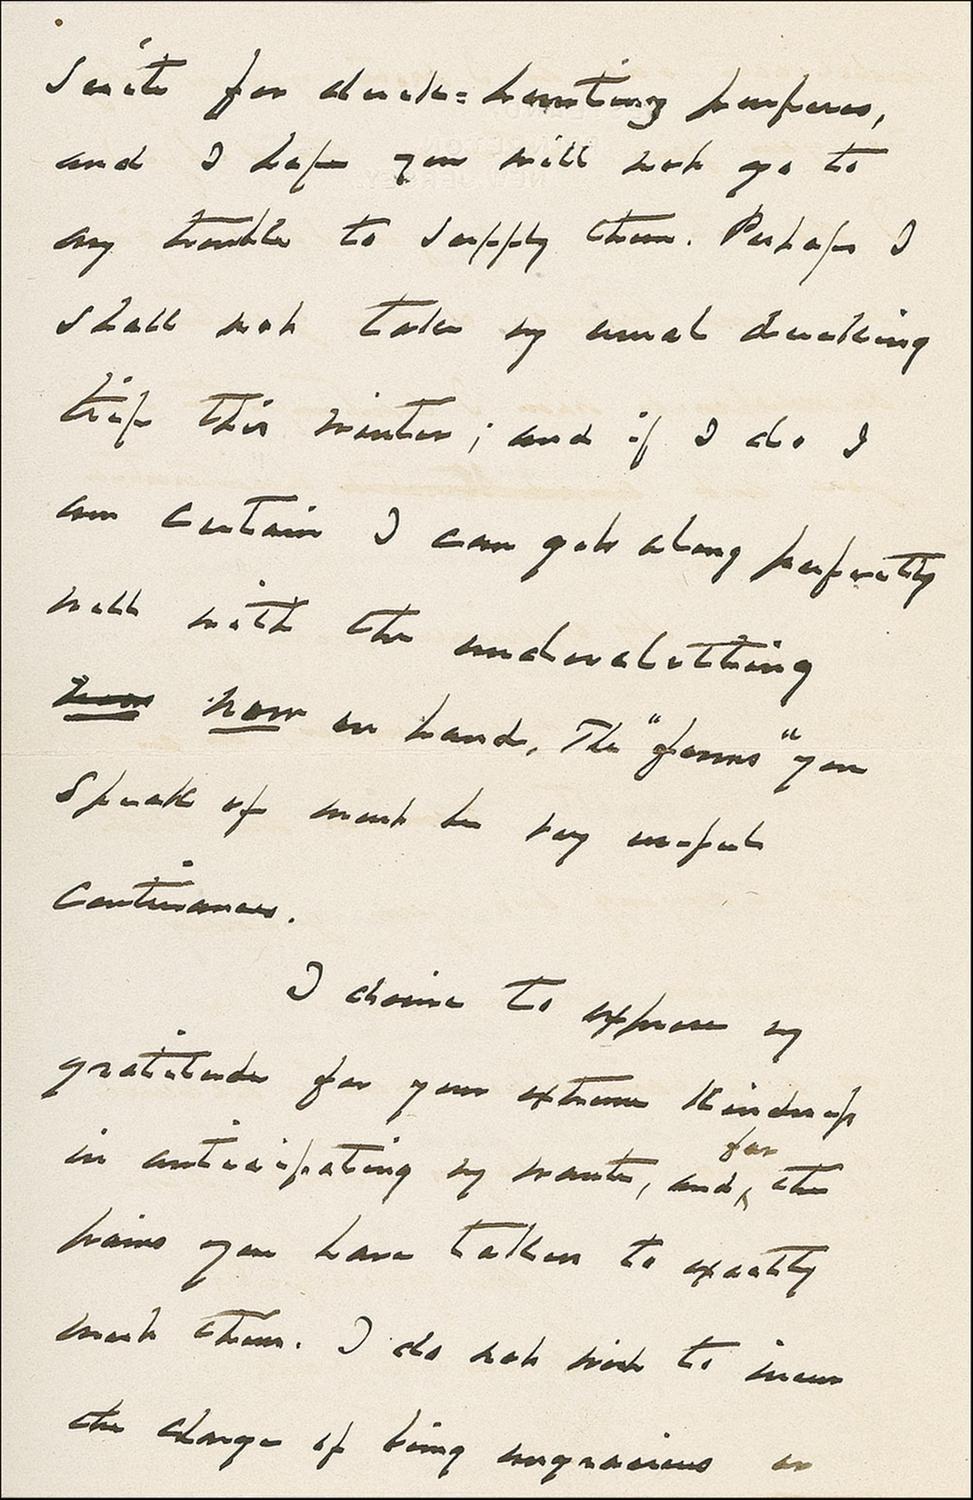 suits for duck-hunting purposes,
and I hope you will not go to
any trouble to supply them. Perhaps I
shall not take my usual ducking
trip this winter; and if I do I
am certain I can get along perfectly
well with the underclothing
now now on hand. The "forms" you
speak of must be very useful
contrivances.
I desire to express my
gratitude for your extreme kindness
in anticipating my wants, and for the
pains you have taken to exactly
meet them. I do not wish to incur
the charge of being ungracious or